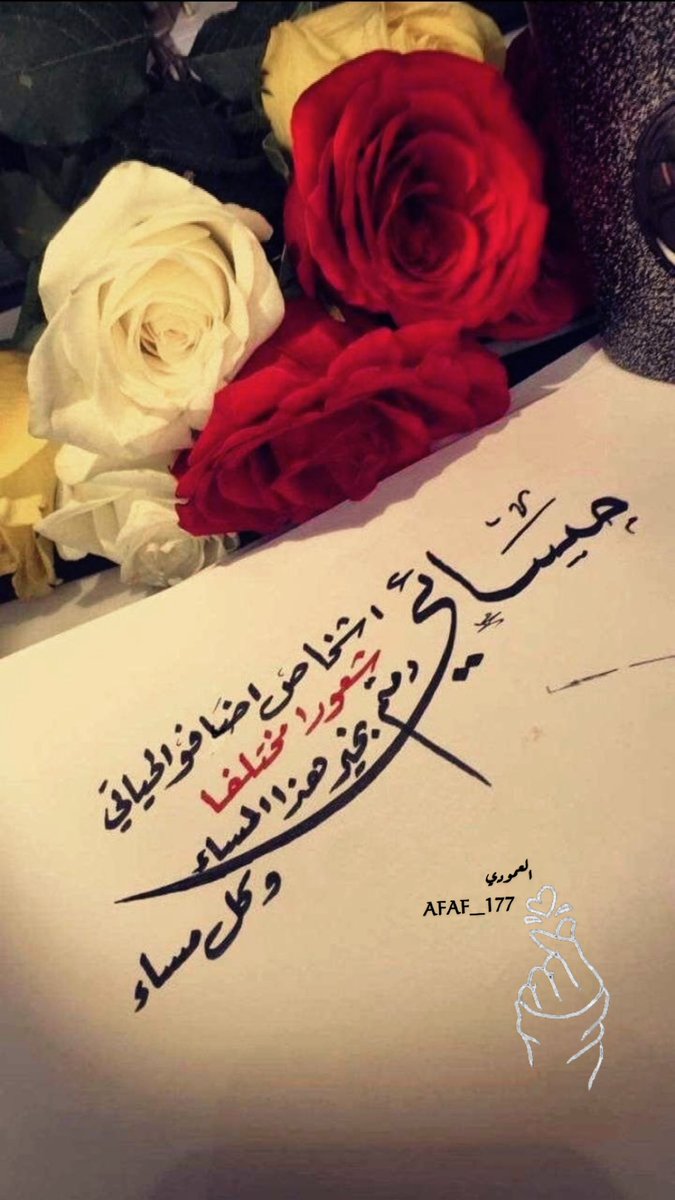 مسائي
اشخاص اضافو الحياتي
شعورا مختلفا
دمتم بخير هذا المساء
وكل مساء
العمودي
AFAF_177